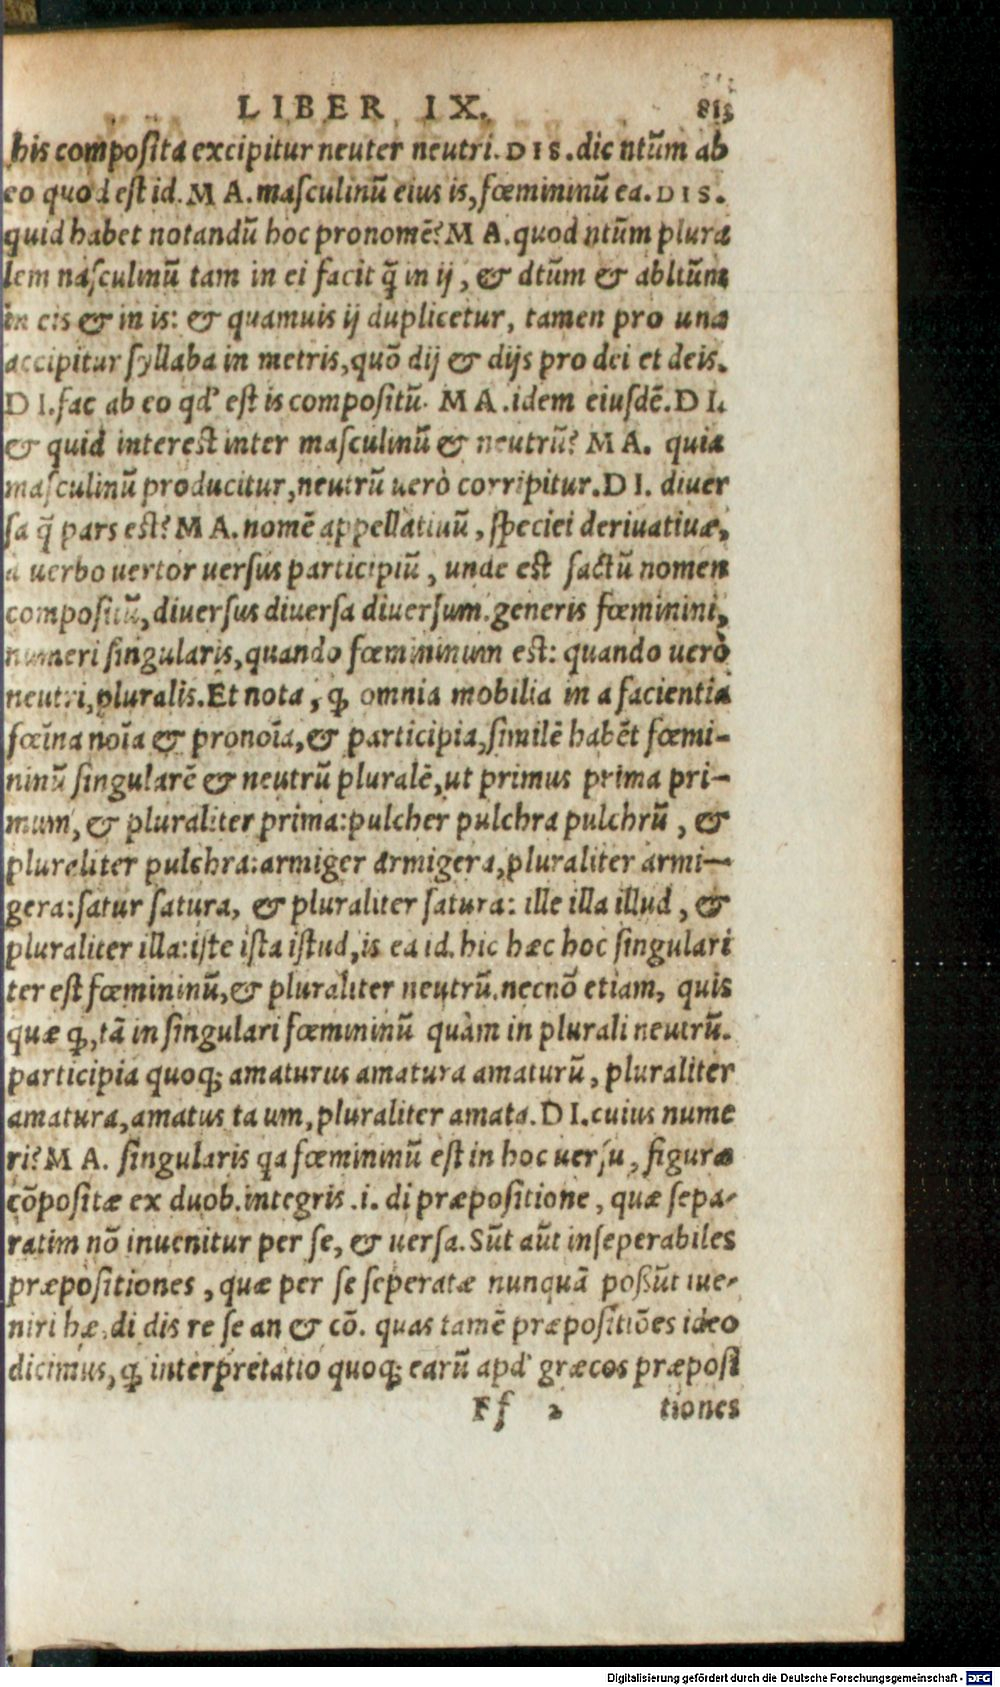 LIBER IX. 813
his composita excipitur neuter neutri. DIS. dic ntũm ab
eo quod est id. MA. masculinũ eius is, fœmininũ ea. DIS.
quid habet notandũ hoc pronomẽ? MA. quod ntũm plura
lem masculinũ tam in ei facit q̃ in ij, & dtũm & abltũm
in eis & in is: & quamuis ij duplicetur, tamen pro una
accipitur syllaba in metris, quõ dij & dijs pro dei et deis.
DI. fac ab eo qd' est is compositũ. MA. idem eiusdẽ. DI.
& quid interest inter masculinũ & neutrũ? MA. quia
masculinũ producitur, neutrũ uerò corripitur. DI. diuer
sa q̃ pars est? MA. nomẽ appellatiuũ, speciei deriuatiuæ,
a uerbo uertor uersus participiũ, unde est factũ nomen
compositũ, diuersus diuersa diuersum. generis fœminini,
numeri singularis, quando fœmininum est: quando uerò
neutri, pluralis. Et nota, ꝙ omnia mobilia in a facientia
fœĩna noĩa & pronoĩa, & participia, similẽ habẽt fœmi-
ninũ singularẽ & neutrũ pluralẽ, ut primus prima pri-
mum, & pluraliter prima: pulcher pulchra pulchrũ, &
pluraliter pulchra: armiger armigera, pluraliter armi-
gera: satur satura, & pluraliter satura: ille illa illud, &
pluraliter illa: iste ista istud, is ea id. hic hæc hoc singulari
ter est fœmininũ, & pluraliter neutrũ. necnõ etiam, quis
quæ ꝙ, tã in singulari fœmininũ quàm in plurali neutrũ.
participia quoq; amaturus amatura amaturũ, pluraliter
amatura, amatus ta um, pluraliter amata. DI. cuius nume
ri? MA. singularis qa fœmininũ est in hoc uersu, figuræ
cõpositæ ex duob. integris .i. di præpositione, quæ sepa-
ratim nõ inuenitur per se, & uersa. Sũt aũt inseperabiles
præpositiones, quæ per se seperatæ nunquã possũt iue-
niri hæ. di dis re se an & cõ. quas tamẽ præpositiões ideo
dicimus, ꝙ interpretatio quoq; earũ apd' græcos præposi
Ff 2 tiones
Digitalisierung gefördert durch die Deutsche Forschungsgemeinschaft - DFG